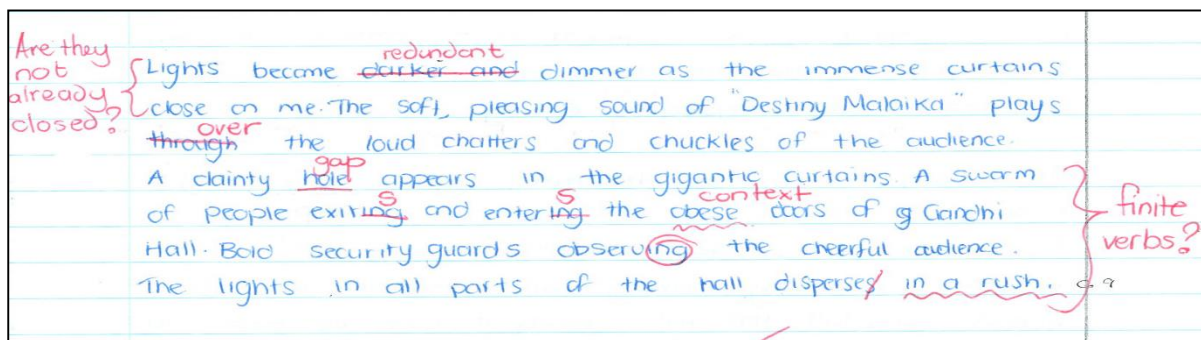 Are they
not
already
closed?
redundant
Lights become darker and dimmer as the immense curtains
close on me. The soft, pleasing sound of "Destiny Malaika" plays
over
through the loud chatters and chuckles of the audience.
gap
A dainty hole appears in the gigantic curtains. A swarm
s s context
of people exiting and entering the obese doors of g Gandhi
Hall. Bold security guards observing the cheerful audience.
The lights in all parts of the hall disperses in a rush.
finite
verbs?